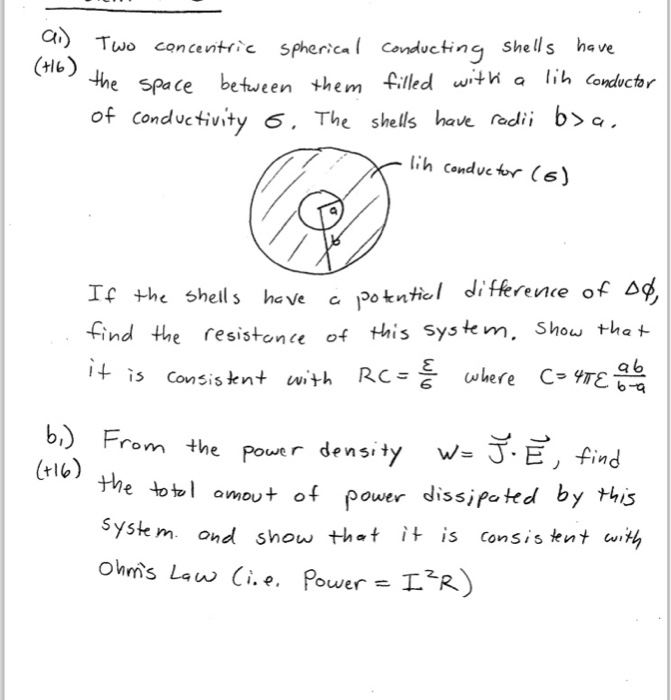 a.) Two concentric spherical conducting shells have
(+16) the space between them filled with a lih conductor
of conductivity σ. The shells have radii b>a.
lih conductor (σ)
a
b
If the shells have a potential difference of Δφ,
find the resistance of this system. Show that
it is consistent with RC = ε/σ where C = 4πε ab/(b-a)
b.) From the power density W = J⃗·E⃗, find
(+16) the total amout of power dissipated by this
system and show that it is consistent with
Ohm's Law (i.e. Power = I²R)